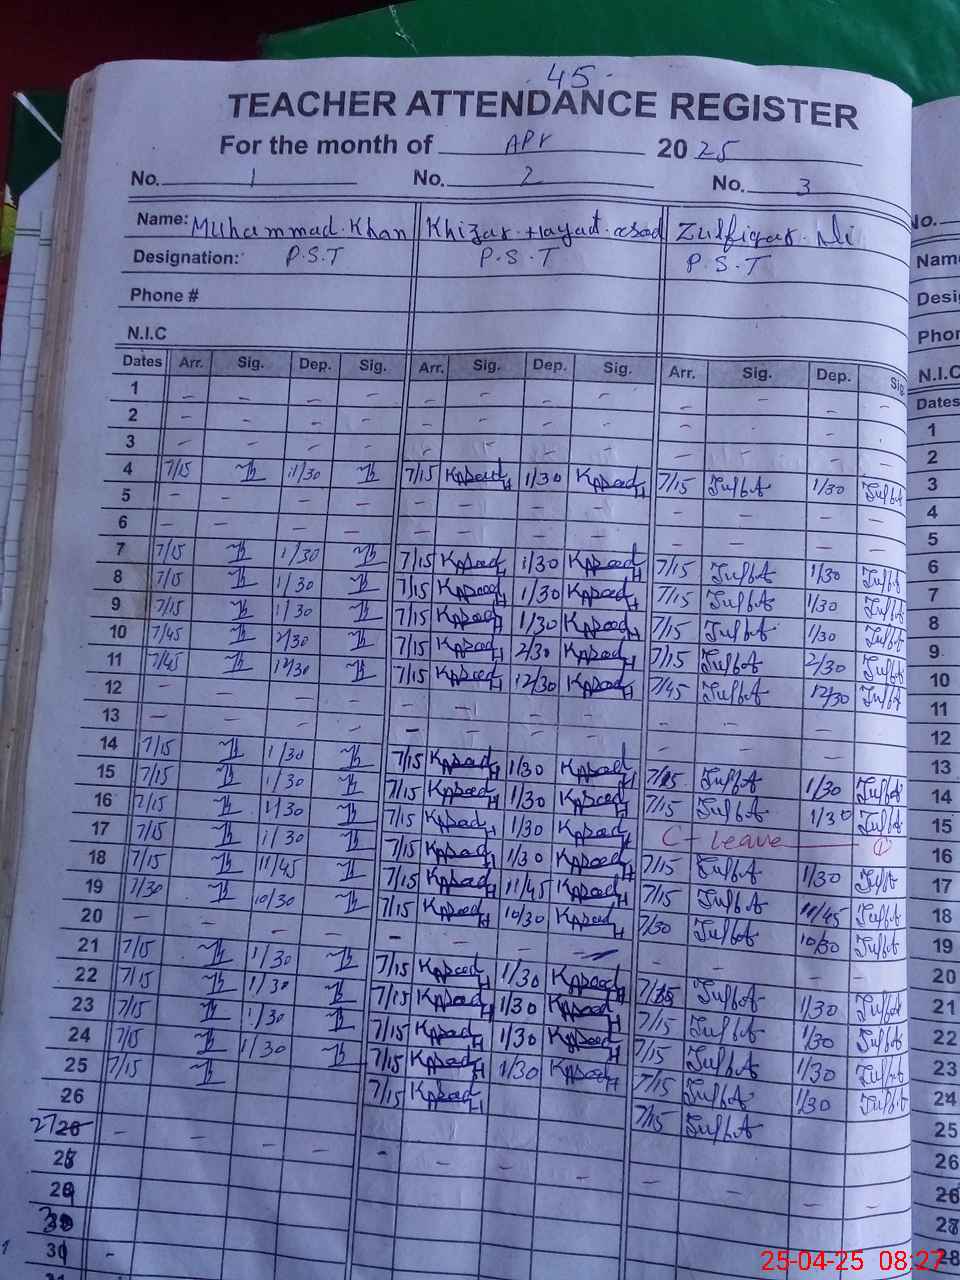 45
TEACHER ATTENDANCE REGISTER
For the month of Apr 2025
No. 1 No. 2 No. 3
Name: Muhammad Khan Khizar Hayat Asad Zulfiqar Ali
Designation: P.S.T P.S.T P.S.T
Phone #
N.I.C
Dates Arr. Sig. Dep. Sig. Arr. Sig. Dep. Sig. Arr. Sig. Dep. Sig.
1 - - - - - - - - - - - -
2 - - - - - - - - - - - -
3 - - - - - - - - - - - -
4 7/15 1/30 7/15 KAsad 1/30 KAsad 7/15 ZulfA 1/30 ZulfA
5 - - - - - - - - - - - -
6 - - - - - - - - - - - -
7 7/15 1/30 7/15 KAsad 1/30 KAsad 7/15 ZulfA 1/30 ZulfA
8 7/15 1/30 7/15 KAsad 1/30 KAsad 7/15 ZulfA 1/30 ZulfA
9 7/15 1/30 7/15 KAsad 1/30 KAsad 7/15 ZulfA 1/30 ZulfA
10 7/45 2/30 7/15 KAsad 2/30 KAsad 7/15 ZulfA 2/30 ZulfA
11 7/45 12/30 7/15 KAsad 12/30 KAsad 7/45 ZulfA 12/30 ZulfA
12 - - - - - - - - - - - -
13 - - - - - - - - - - - -
14 7/15 1/30 7/15 KAsad 1/30 KAsad 7/15 ZulfA 1/30 ZulfA
15 7/15 1/30 7/15 KAsad 1/30 KAsad 7/15 ZulfA 1/30 ZulfA
16 7/15 1/30 7/15 KAsad 1/30 KAsad C-Leave 1
17 7/15 1/30 7/15 KAsad 1/30 KAsad 7/15 ZulfA 1/30 ZulfA
18 7/15 11/45 7/15 KAsad 11/45 KAsad 7/15 ZulfA 11/45 ZulfA
19 7/30 10/30 7/15 KAsad 10/30 KAsad 7/30 ZulfA 10/30 ZulfA
20 - - - - - - - - - - -
21 7/15 1/30 7/15 KAsad 1/30 KAsad 7/15 ZulfA 1/30 ZulfA
22 7/15 1/30 7/15 KAsad 1/30 KAsad 7/15 ZulfA 1/30 ZulfA
23 7/15 1/30 7/15 KAsad 1/30 KAsad 7/15 ZulfA 1/30 ZulfA
24 7/15 1/30 7/15 KAsad 1/30 KAsad 7/15 ZulfA 1/30 ZulfA
25 7/15 7/15 KAsad 7/15 ZulfA
26
27 - - - - - - - - - - - -
28
29
30
31 -
No.
Name
Desi
Phor
N.I.C
Dates
1
2
3
4
5
6
7
8
9
10
11
12
13
14
15
16
17
18
19
20
21
22
23
24
25
26
26
28
28
25-04-25 08:27